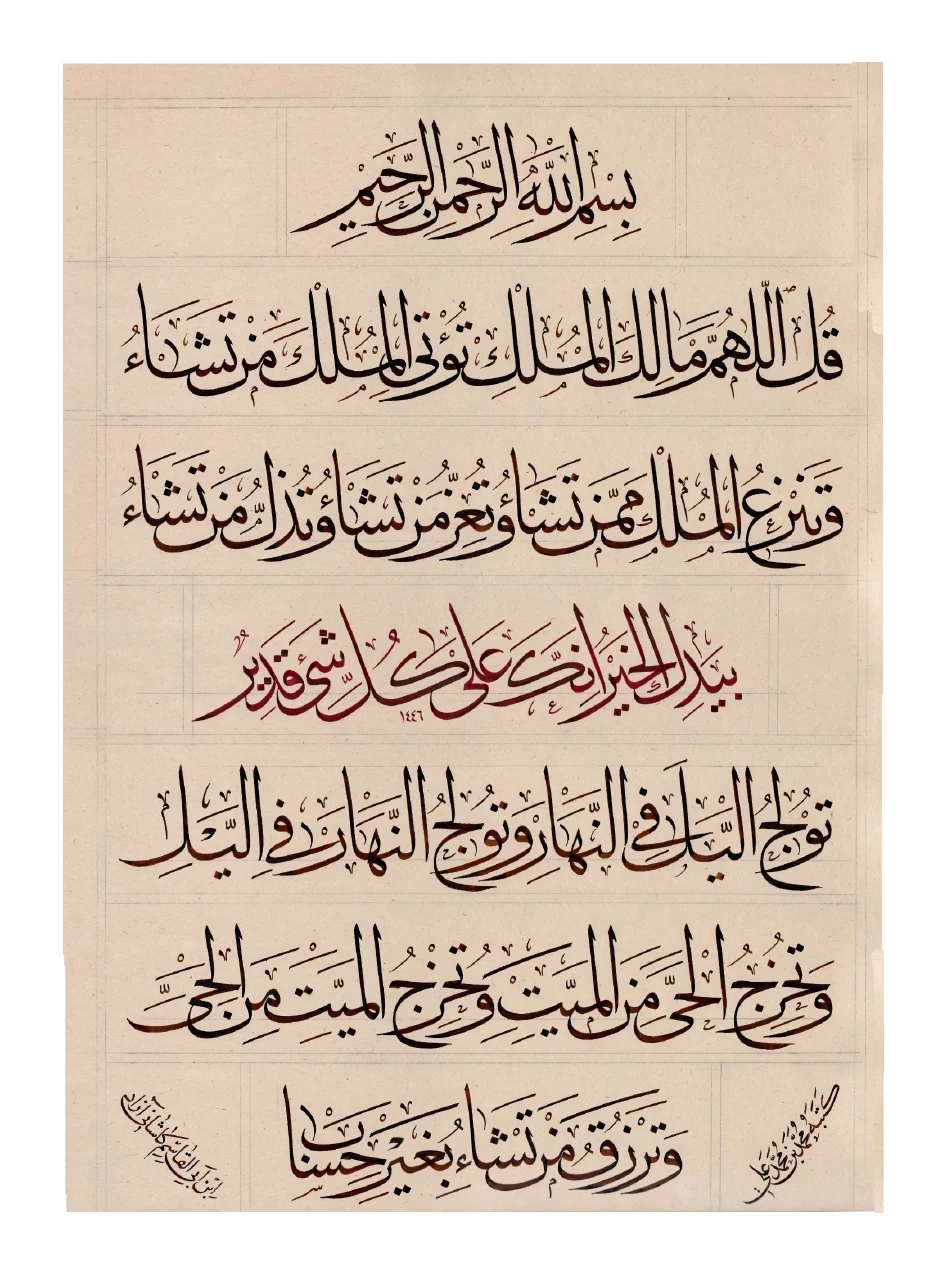 بِسْمِ اللّٰهِ الرَّحْمٰنِ الرَّحِيْمِ
قُلِ اللّٰهُمَّ مَالِكَ الْمُلْكِ تُؤْتِى الْمُلْكَ مَنْ تَشَاءُ
وَتَنْزِعُ الْمُلْكَ مِمَّنْ تَشَاءُ وَتُعِزُّ مَنْ تَشَاءُ وَتُذِلُّ مَنْ تَشَاءُ
بِيَدِكَ الْخَيْرُ اِنَّكَ عَلٰى كُلِّ شَىْءٍ قَدِيْرٌ
١٤٤٦
تُوْلِجُ الَّيْلَ فِى النَّهَارِ وَتُوْلِجُ النَّهَارَ فِى الَّيْلِ
وَتُخْرِجُ الْحَىَّ مِنَ الْمَيِّتِ وَتُخْرِجُ الْمَيِّتَ مِنَ الْحَىِّ
وَتَرْزُقُ مَنْ تَشَاءُ بِغَيْرِ حِسَابٍ
كتبه محمد بن محمد على
ابن ابى القاسم كاشانى نژاد